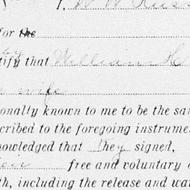 I, W W
for the
tify that William H
wife
onally known to me to be the sa
cribed to the foregoing instrume
owledged that they signed,
free and voluntary
th, including the release and